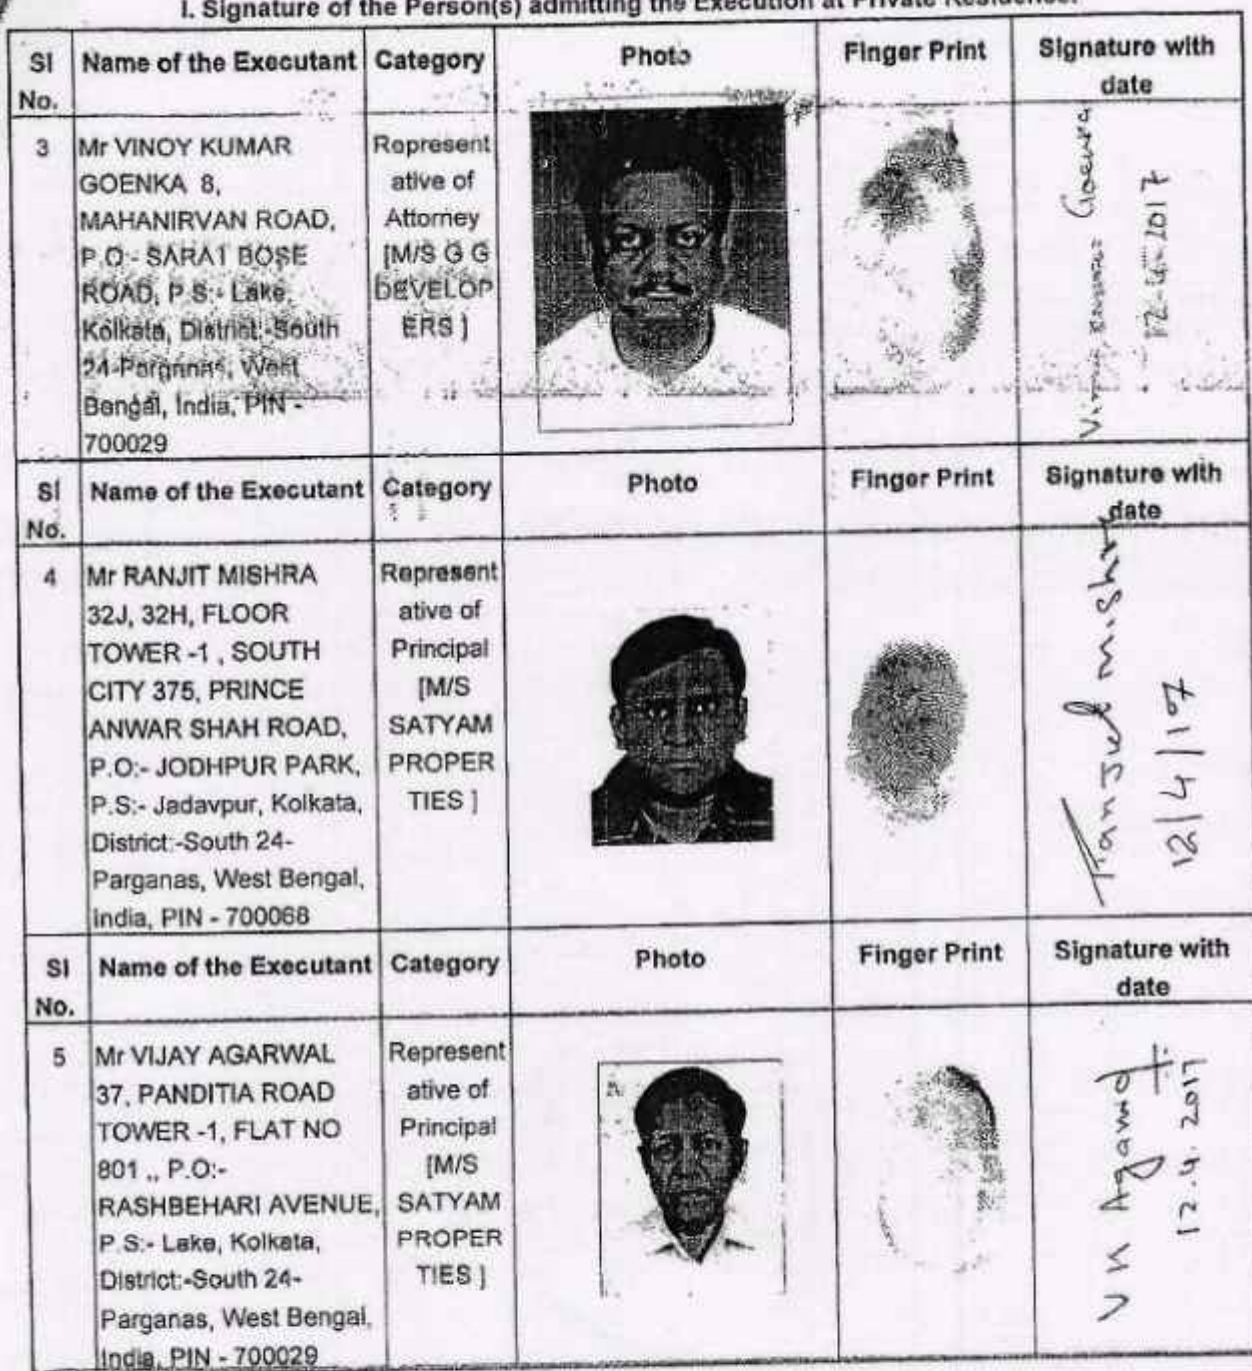 I. Signature of the Person(s) admitting the Execution at Private Residence.
Sl No. Name of the Executant Category Photo Finger Print Signature with date
3
Mr VINOY KUMAR
GOENKA 8,
MAHANIRVAN ROAD,
P.O:- SARAT BOSE
ROAD, P.S:- Lake,
Kolkata, District:-South
24-Parganas, West
Bengal, India, PIN -
700029
Represent
ative of
Attorney
[M/S G G
DEVELOP
ERS ]
Goenka
12-4-2017
Sl No. Name of the Executant Category Photo Finger Print Signature with date
4
Mr RANJIT MISHRA
32J, 32H, FLOOR
TOWER -1 , SOUTH
CITY 375, PRINCE
ANWAR SHAH ROAD,
P.O:- JODHPUR PARK,
P.S:- Jadavpur, Kolkata,
District:-South 24-
Parganas, West Bengal,
India, PIN - 700068
Represent
ative of
Principal
[M/S
SATYAM
PROPER
TIES ]
Ranjit Mishra
12/4/17
Sl No. Name of the Executant Category Photo Finger Print Signature with date
5
Mr VIJAY AGARWAL
37, PANDITIA ROAD
TOWER -1, FLAT NO
801 ,, P.O:-
RASHBEHARI AVENUE,
P.S:- Lake, Kolkata,
District:-South 24-
Parganas, West Bengal,
India, PIN - 700029
Represent
ative of
Principal
[M/S
SATYAM
PROPER
TIES ]
12.4.2017